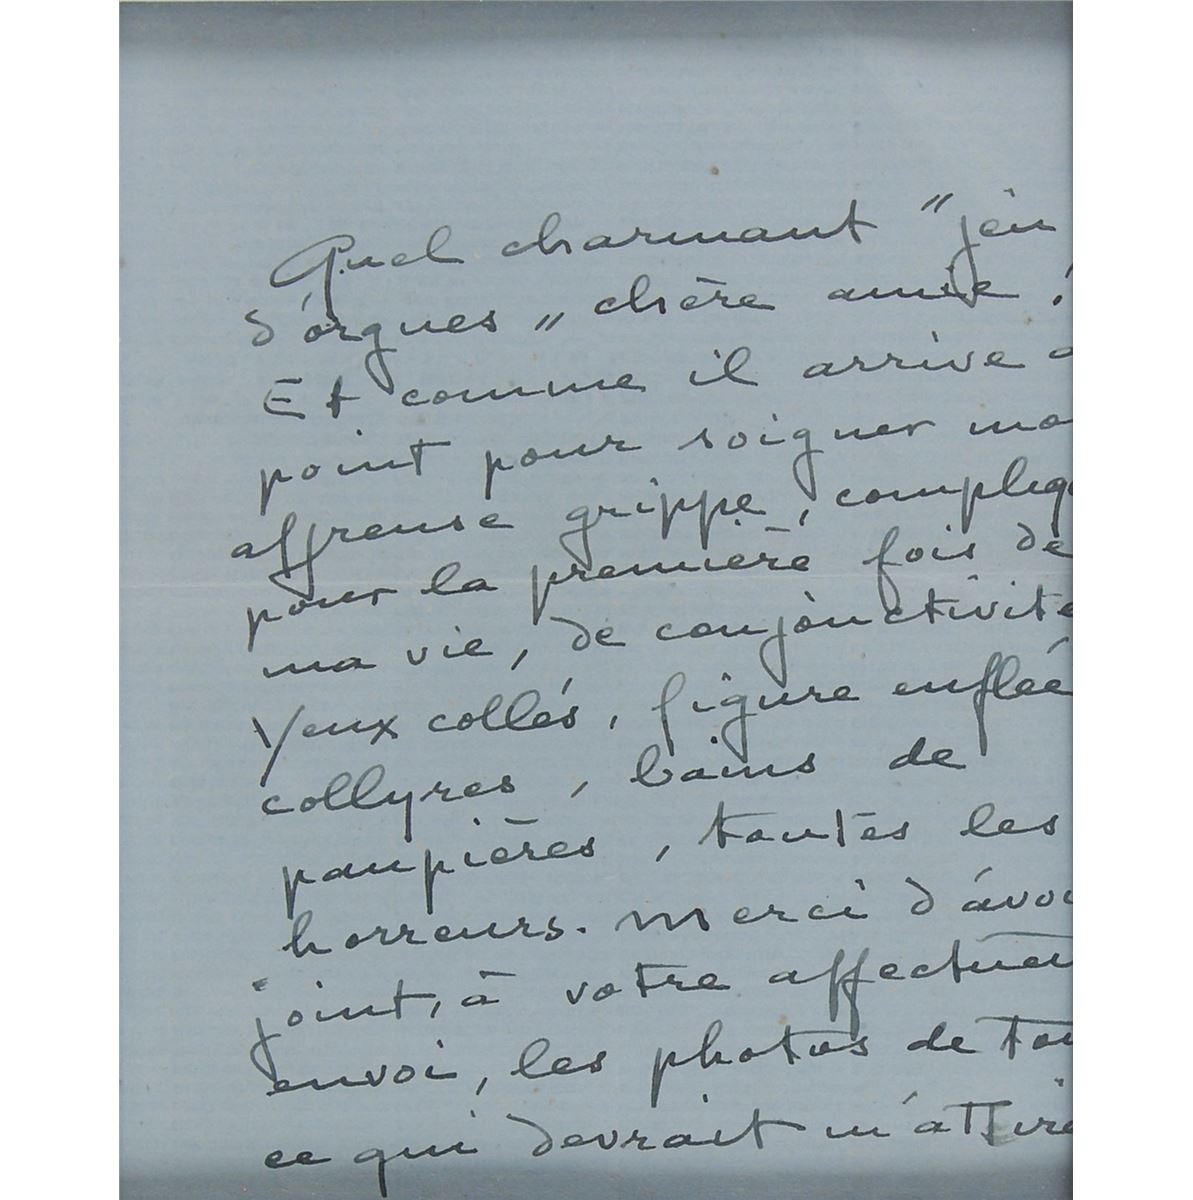 Quel charmant "jeu
d'orgues" chère amie !
Et comme il arrive a
point pour soigner mo
affreuse grippe, compliq
pour la première fois de
ma vie, de conjonctivite
Yeux collés, figure enflée
collyres, bains de
paupières, toutes les
horreurs. Merci d'avoi
joint, à votre affectueu
envoi, les photos de tou
ce qui devrait m'attire